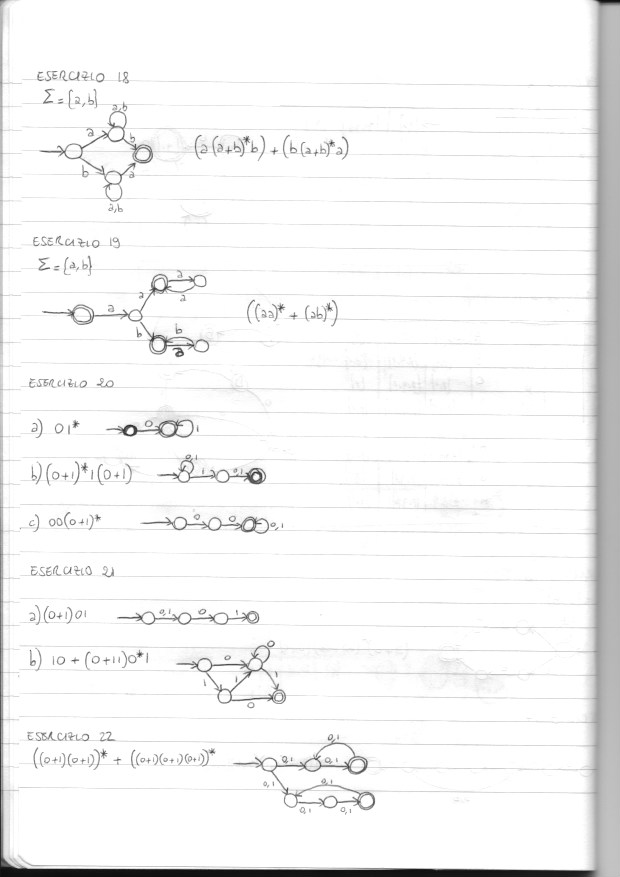 ESERCIZIO 18
Σ = {a, b}
a,b
a b
(a(a+b)*b) + (b(a+b)*a)
b a
a,b
ESERCIZIO 19
Σ = {a, b}
a
a a
a
((aa)* + (ab)*)
b b
a
ESERCIZIO 20
a) 01* 0 1
0,1
b) (0+1)*1(0+1) 1 0,1
c) 00(0+1)* 0 0 0,1
ESERCIZIO 21
a) (0+1)01 0,1 0 1
0
b) 10 + (0+11)0*1 0
1 1 1
0
ESERCIZIO 22
0,1
((0+1)(0+1))* + ((0+1)(0+1)(0+1))* 0,1 0,1
0,1 0,1
0,1 0,1